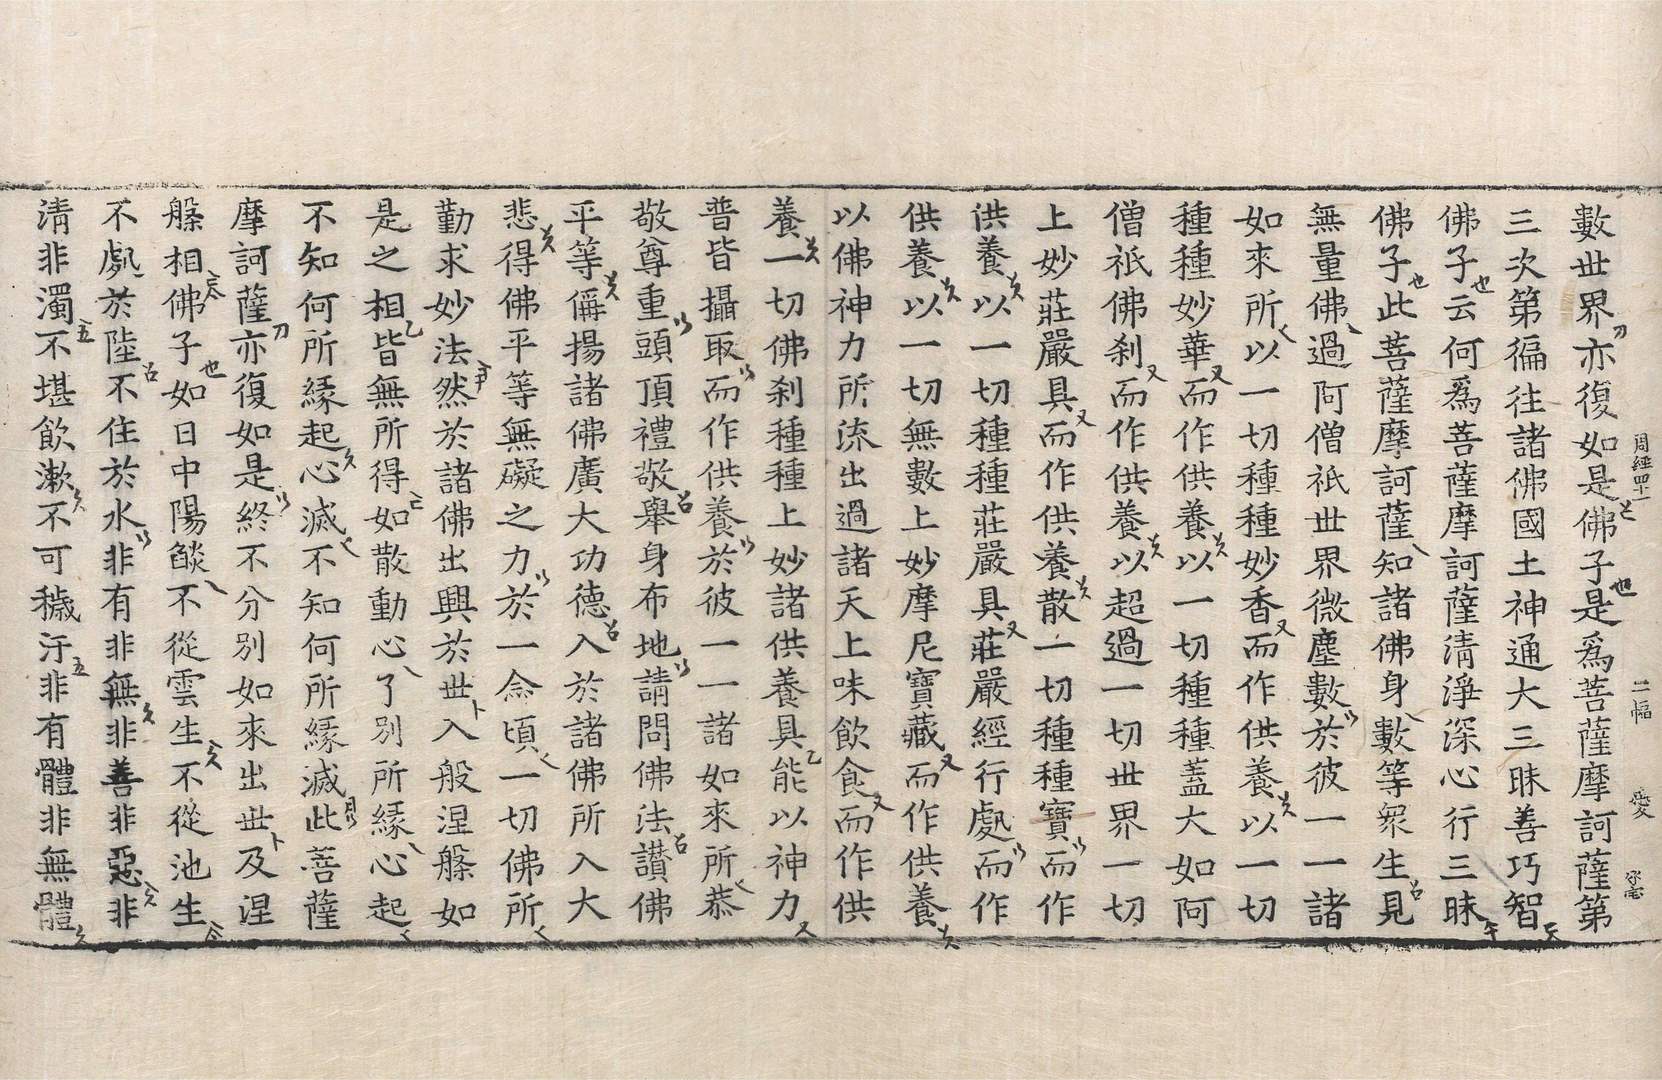 周經四十一 二幅 愛
數世界亦復如是佛子是爲菩薩摩訶薩第
三次第徧往諸佛國土神通大三昧善巧智
佛子云何爲菩薩摩訶薩清淨深心行三昧
佛子此菩薩摩訶薩知諸佛身數等衆生見
無量佛過阿僧祇世界微塵數於彼一一諸
如來所以一切種種妙香而作供養以一切
種種妙華而作供養以一切種種蓋大如阿
僧祇佛刹而作供養以超過一切世界一切
上妙莊嚴具而作供養散一切種種寶而作
供養以一切種種莊嚴具莊嚴經行處而作
供養以一切無數上妙摩尼寶藏而作供養
以佛神力所流出過諸天上味飲食而作供
養一切佛刹種種上妙諸供養具能以神力
普皆攝取而作供養於彼一一諸如來所恭
敬尊重頭頂禮敬舉身布地請問佛法讚佛
平等偁揚諸佛廣大功德入於諸佛所入大
悲得佛平等無礙之力於一念頃一切佛所
勤求妙法然於諸佛出興於世入般涅槃如
是之相皆無所得如散動心了別所緣心起
不知何所緣起心滅不知何所緣滅此菩薩
摩訶薩亦復如是終不分別如來出世及涅
槃相佛子如日中陽燄不從雲生不從池生
不處於陸不住於水非有非無非善非惡非
清非濁不堪飲漱不可穢汙非有體非無體